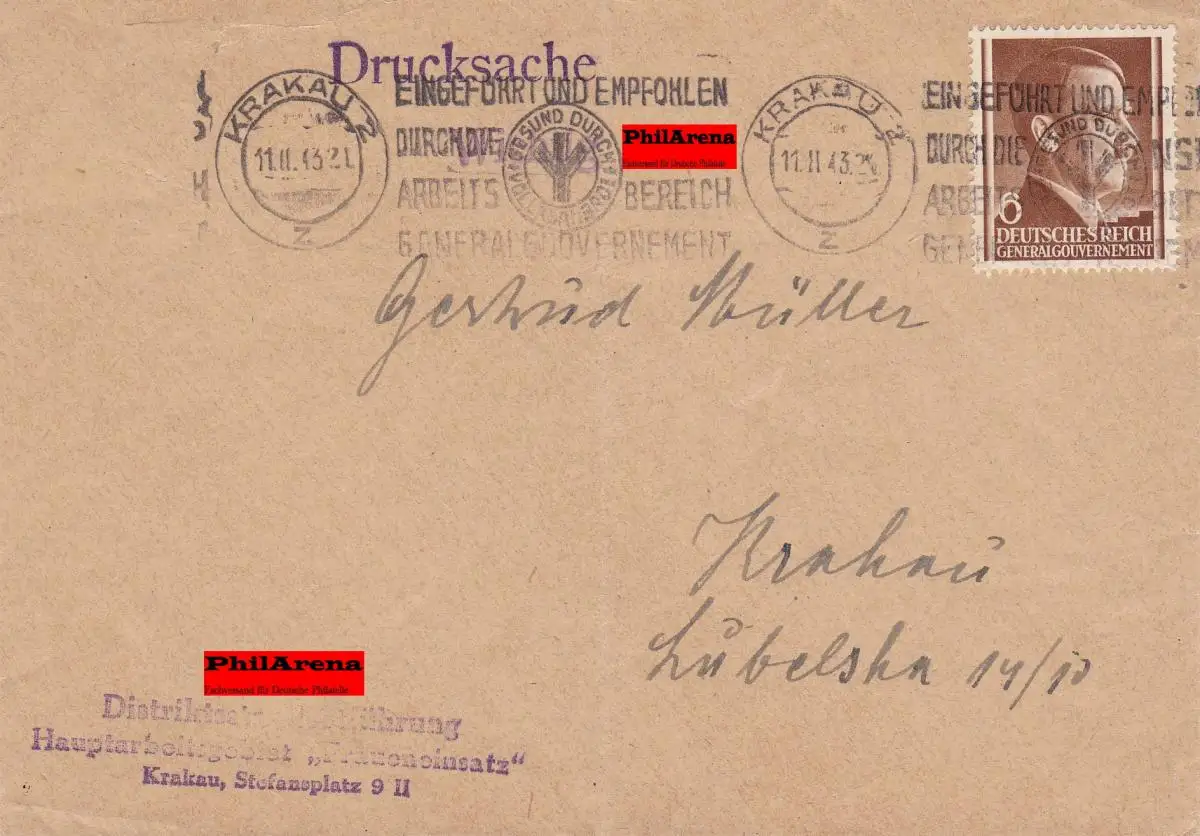 Drucksache
KRAKAU 2
11.II.43.21
Z
EINGEFÜHRT UND EMPFOHLEN
DURCH DIE
ARBEITS BEREICH
GENERALGOUVERNEMENT
GESUND DURCH
PhilArena
Fachversand für Deutsche Philatelie
KRAKAU 2
11.II.43.21
Z
EINGEFÜHRT UND EMPF
DURCH DIE
6
DEUTSCHES REICH
GENERALGOUVERNEMENT
Gertrud Müller
Krakau
Lubelska 14/10
PhilArena
Fachversand für Deutsche Philatelie
Hauptarbeitsgebiet „Fraueneinsatz“
Krakau, Stefansplatz 9 II